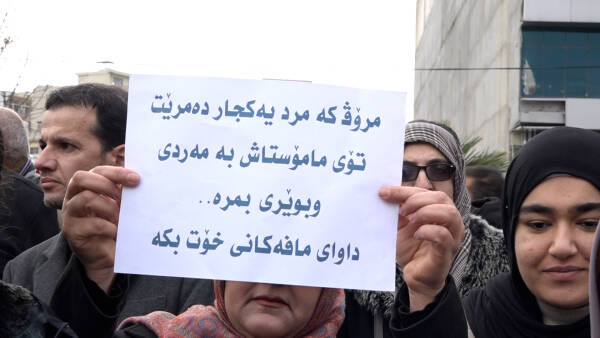 مرۆڤ که مرد یه‌کجار ده‌مرێت
تۆی مامۆستاش به مه‌ردی
وبوێری بمره..
داوای مافه‌کانی خۆت بکه